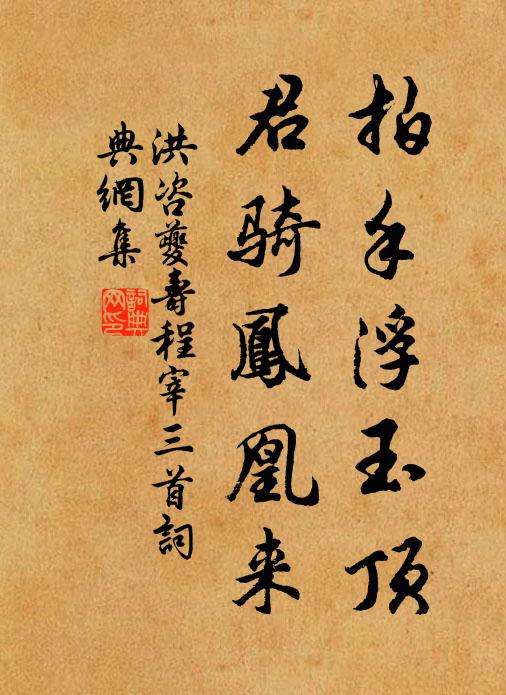 拍手浮玉頂
君騎鳳凰来
洪咨夔壽程宰三首詞
典網集
詞典網印